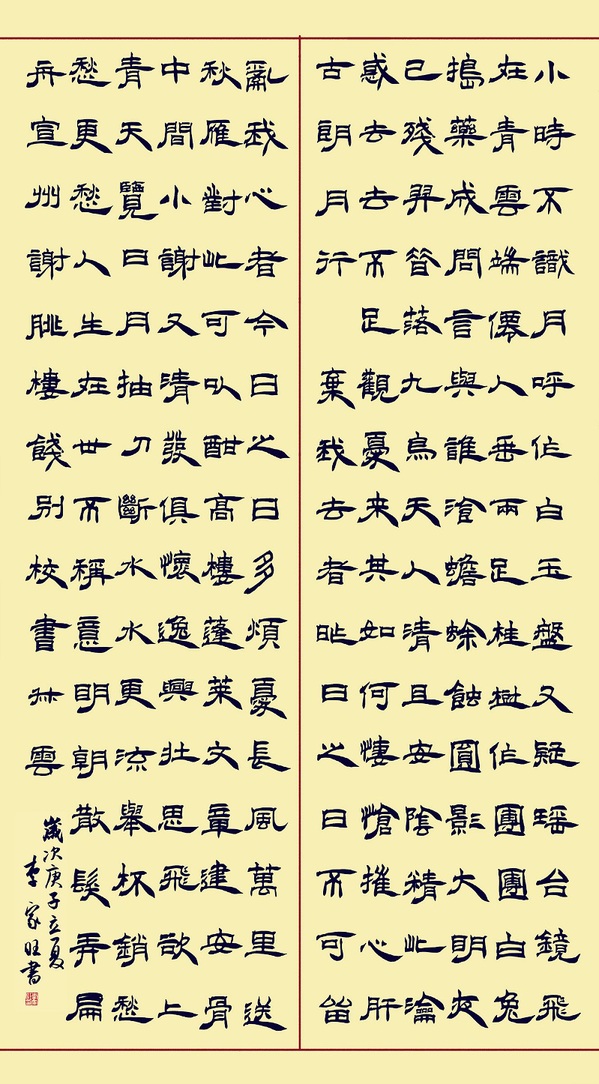 小時不識月呼作白玉盤又疑瑶台鏡飛
在青雲端僊人垂兩足桂樹作團團白兔
搗藥成問言與誰湌蟾蜍蝕圓影大明夜
已殘羿昔落九烏天人清且安陰精此淪
惑去去不足觀憂来其如何悽愴摧心肝
古朗月行 棄我去者昨日之日不可留
亂我心者今日之日多煩憂長風萬里送
秋雁對此可以酣高樓蓬萊文章建安骨
中間小謝又清發俱懷逸興壮思飛欲上
青天覽日月抽刀斷水水更流舉杯銷愁
愁更愁人生在世不稱意明朝散髮弄扁
舟宣州謝朓樓餞別校書叔雲
歲次庚子立夏
李家旺書